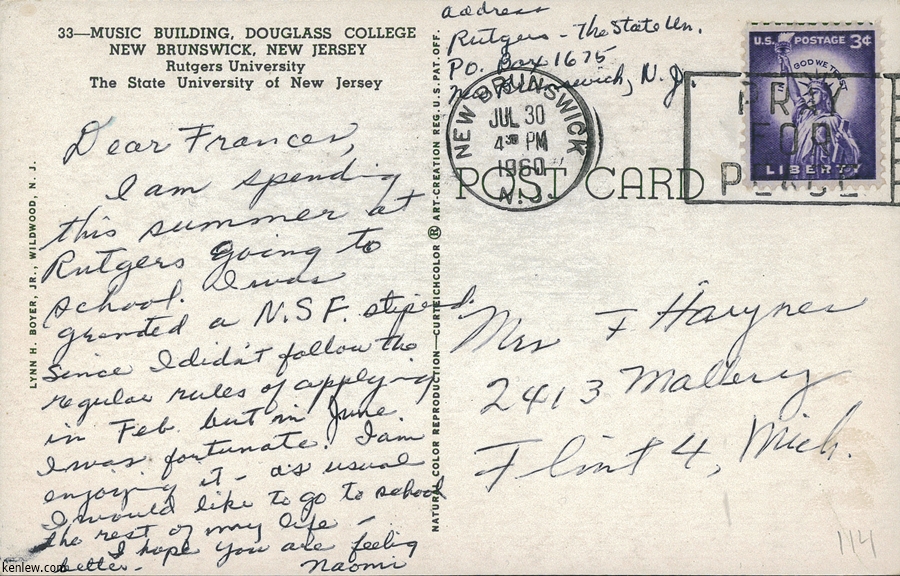 33—MUSIC BUILDING, DOUGLASS COLLEGE
NEW BRUNSWICK, NEW JERSEY
Rutgers University
The State University of New Jersey
Dear Frances,
I am spending
this summer at
Rutgers going to
school. I was
granted a N.S.F. stipend.
Since I didn't follow the
regular rules of applying
in Feb. but in June
I was fortunate. I am
enjoying it - as usual
I would like to go to school
the rest of my life -
I hope you are feeling
better. Naomi
LYNN H. BOYER, JR., WILDWOOD, N. J.
NATURAL COLOR REPRODUCTION—CURTEICHCOLOR ® ART-CREATION REG. U.S. PAT. OFF.
address
Rutgers - The State Un.
P.O. Box 1675
New Brunswick, N. J.
NEW BRUNSWICK
JUL 30
4 30 PM
1960
N.J.
PRAY
FOR
PEACE
U.S. POSTAGE 3¢
IN GOD WE TRUST
LIBERTY
POST CARD
Mrs F Haynes
2413 Mallery
Flint 4, Mich.
114
kenlew.com